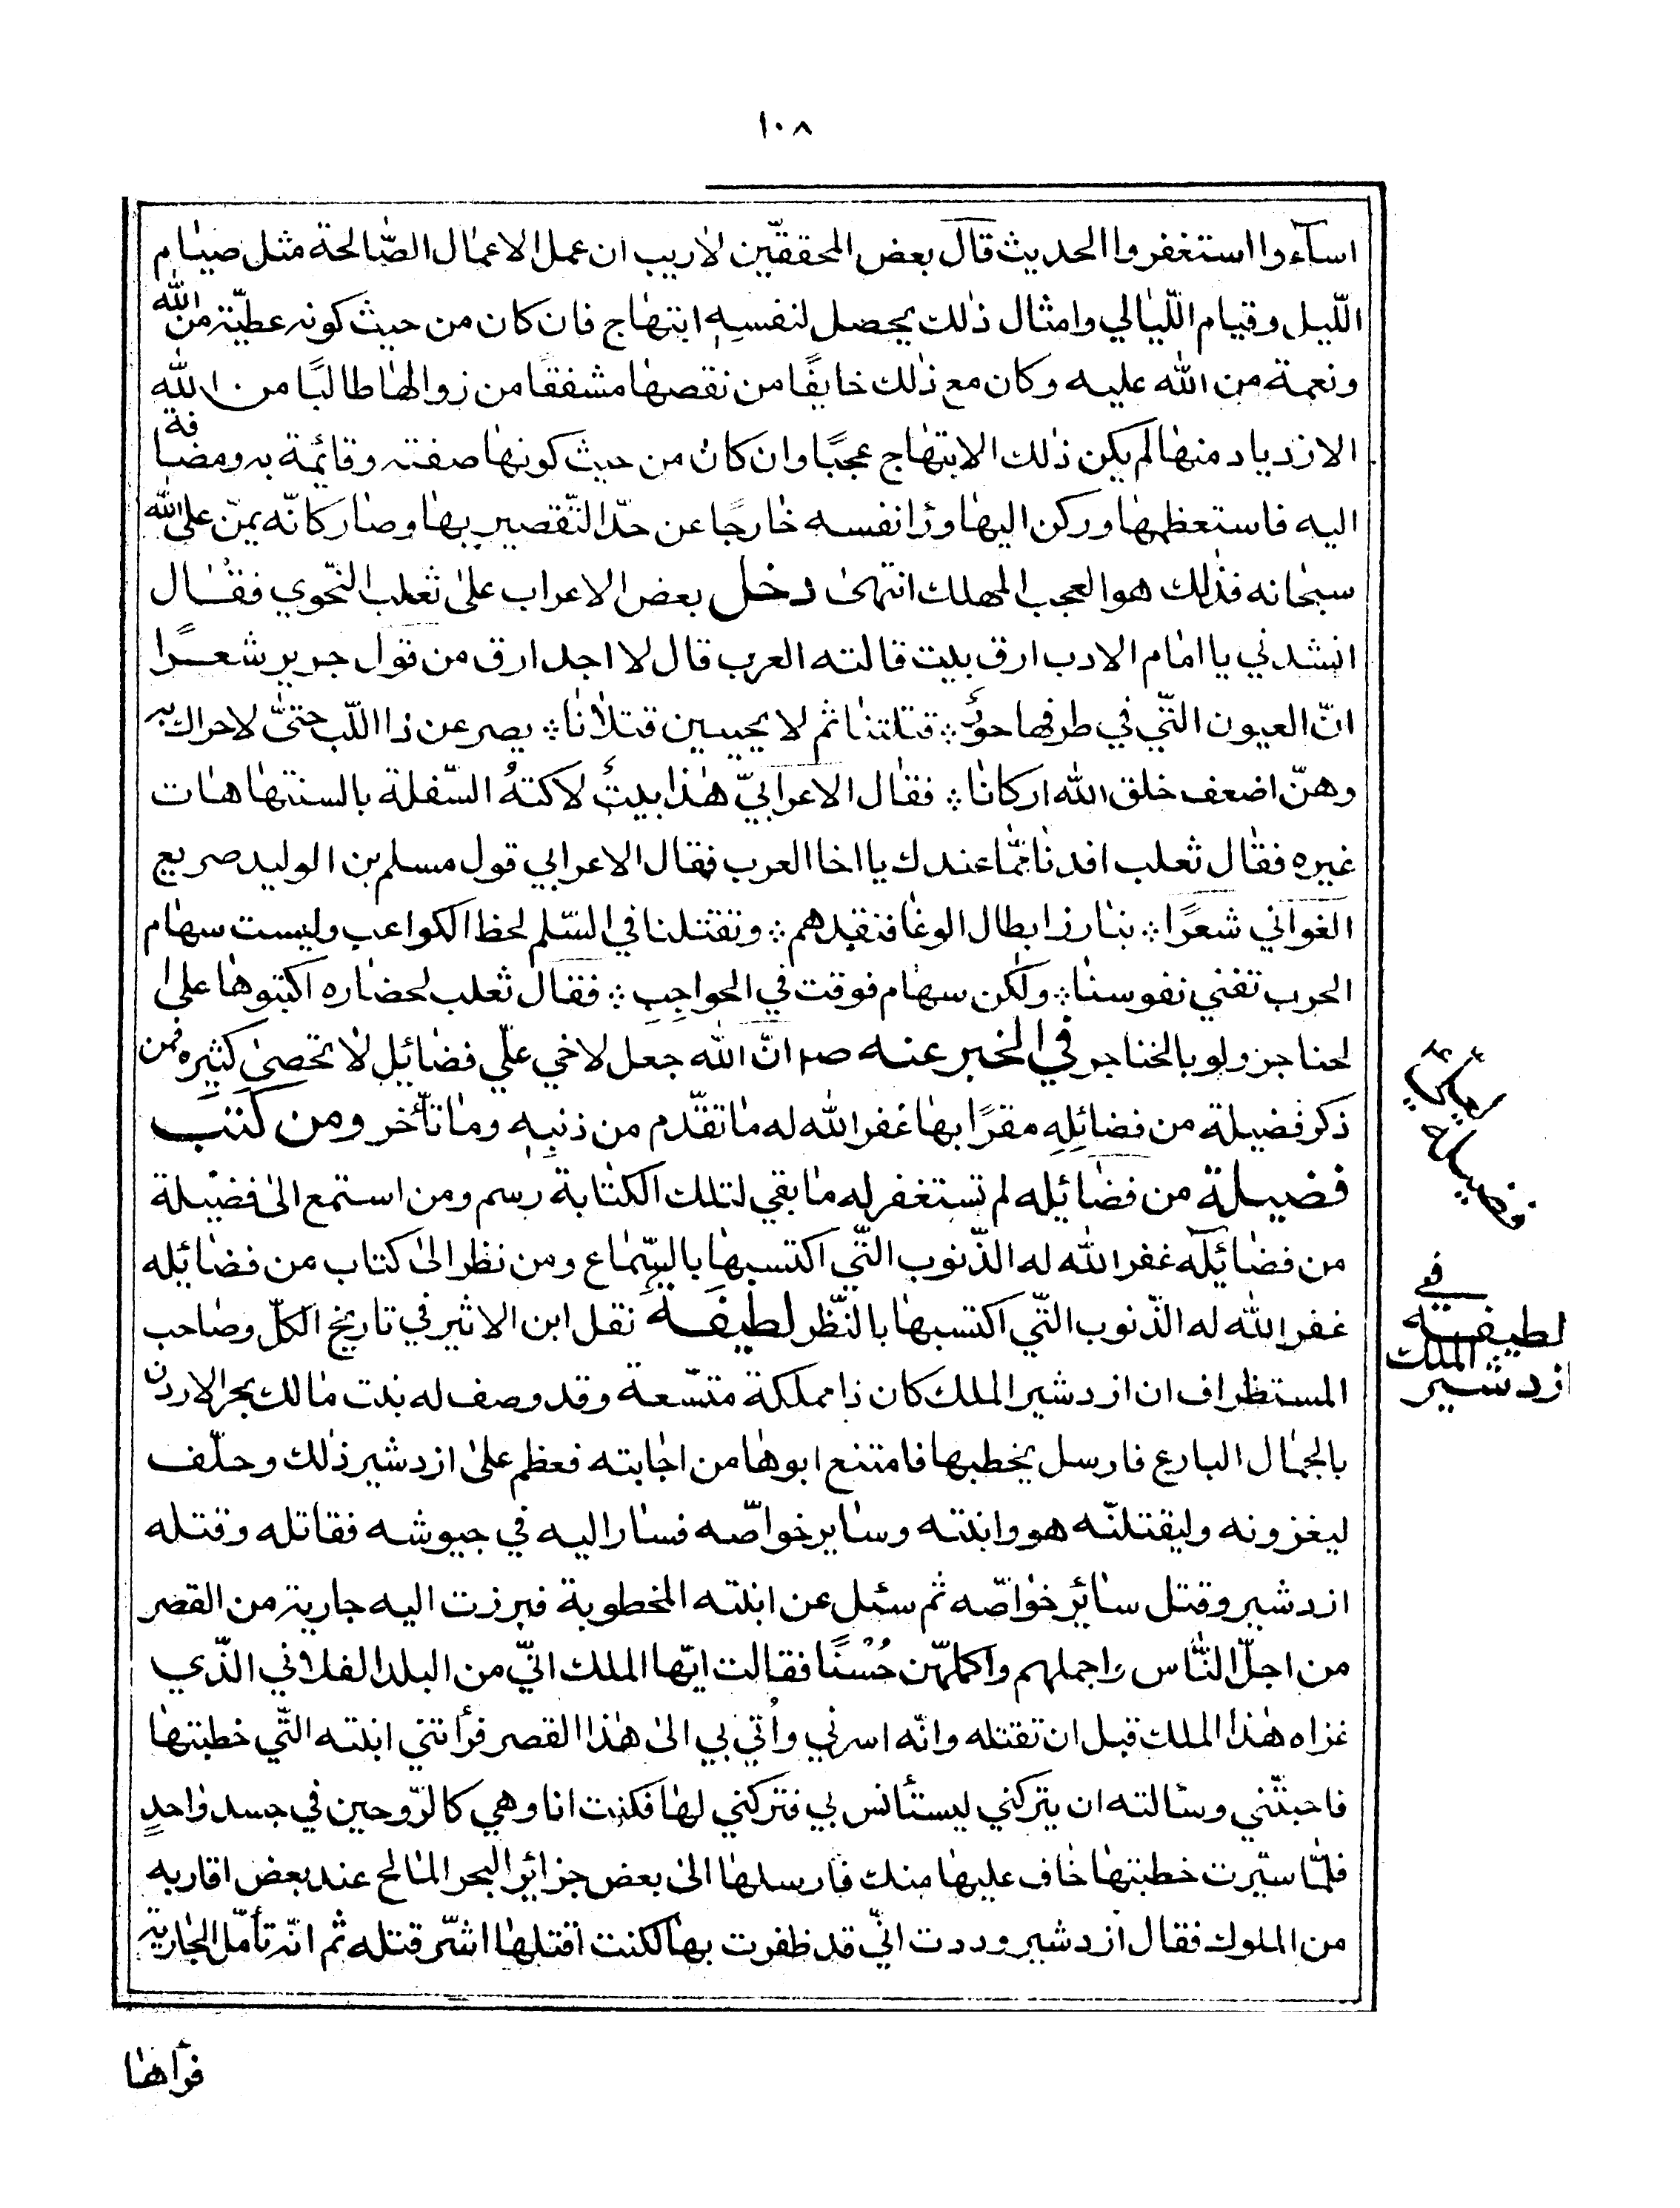 ١٠٨
اسآءوا استغفروا الحديث قال بعض المحققين لاريب ان عمل الاعمال الصالحة مثل صيام
الليل وقيام الليالي وامثال ذلك يحصل لنفسه ابتهاج فان كان من حيث كونه عطية من الله
ونعمة من الله عليه وكان مع ذلك خايفًا من نقصها مشفقا من زوالها طالبًا من الله
الازدياد منها لم يكن ذلك الابتهاج عجبًا وان كان من حيث كونها صفته وقائمة به ومضافة
اليه فاستعظمها وركن اليها ورا نفسه خارجًا عن حد التقصير بها وصار كانه يمن على الله
سبحانه فذلك هو العجب المهلك انتهى دخل بعض الاعراب على ثعلب النحوي فقال
انشدني يا امام الادب ارق بيت قالته العرب قال لا اجد ارق من قول جرير شعرًا
ان العيون التي في طرفها حور ؞ قتلتنا ثم لا يحيين قتلانا ؞ يصرعن ذا اللب حتى لا حراك به
وهن اضعف خلق الله اركانا ؞ فقال الاعرابي هذا بيت لاكته السفلة بالسنتها هات
غيره فقال ثعلب افدنا مما عندك يا اخا العرب فقال الاعرابي قول مسلم بن الوليد صريع
الغواني شعرًا ؞ نبارز ابطال الوغا فنقدهم ؞ وتقتلنا في السلم لحظ الكواعب وليست سهام
الحرب تفني نفوسنا ؞ ولكن سهام فوقت في الحواجب ؞ فقال ثعلب لحضاره اكتبوها على
لحناجز ولو بالخناجر في الخبر عنه صم ان الله جعل لاخي علي فضائل لا تحصى كثيره فمن
ذكر فضيلة من فضائله مقرًا بها غفر الله له ما تقدم من ذنبه وما تأخر ومن كتب
فضيلة من فضائله لم تستغفر له ما بقي لتلك الكتابة رسم ومن استمع الى فضيلة
من فضائله غفر الله له الذنوب التي اكتسبها بالسماع ومن نظر الى كتاب من فضائله
غفر الله له الذنوب التي اكتسبها بالنظر لطيفة نقل ابن الاثير في تاريخ الكل وصاحب
المستظراف ان ازدشير الملك كان ذا مملكة متسعة وقد وصف له بنت مالك بحر الاردن
بالجمال البارع فارسل يخطبها فامتنع ابوها من اجابته فعظم على ازدشير ذلك وحلف
ليغزونه وليقتلنه هو وابنته وساير خواصه فسار اليه في جيوشه فقاتله وقتله
ازدشير وقتل سائر خواصه ثم سئل عن ابنته المخطوبة فبرزت اليه جارية من القصر
من اجل الناس واجملهم واكملهن حُسْنًا فقالت ايها الملك اني من البلد الفلاني الذي
غزاه هذا الملك قبل ان تقتله وانه اسرني وأتي بي الى هذا القصر فرأتني ابنته التي خطبتها
فاحبتني وسالته ان يتركني ليستأنس بي فتركني لها فكنت انا وهي كالروحين في جسد واحدٍ
فلما سيرت خطبتها خاف عليها منك فارسلها الى بعض جزائر البحر المالح عند بعض اقاربه
من الملوك فقال ازدشير وددت اني قد ظفرت بها لكنت اقتلها اشر قتله ثم انه تأمل الجارية
فرأها
فضيلة
في
لطيفة
الملك
ازدشير